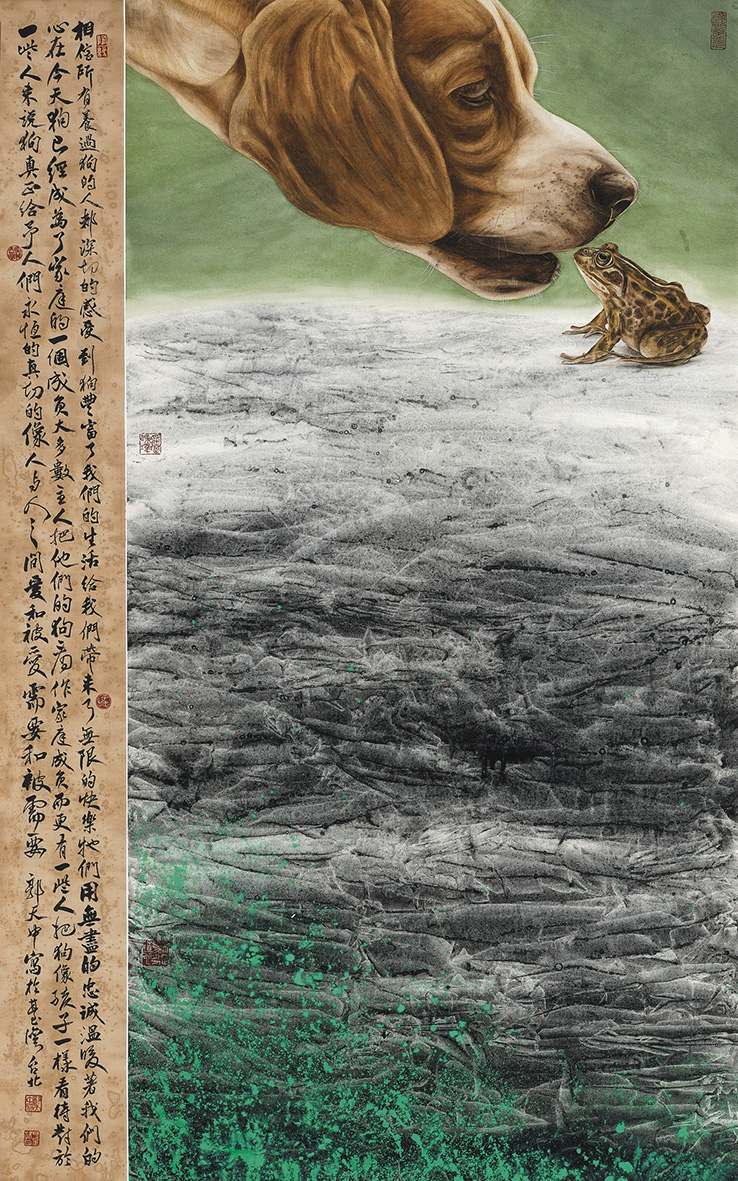 相信所有養過狗的人都深切的感受到狗豐富了我們的生活給我們帶來了無限的快樂牠們用無盡的忠誠溫暖著我們的
心在今天狗已經成為了家庭的一個成員大多數主人把他們的狗當作家庭成員而更有一些人把狗像孩子一樣看待對於
一些人來說狗真正給予人們永恆的真切的像人与人之間愛和被愛需要和被需要 郭天中寫於 台北